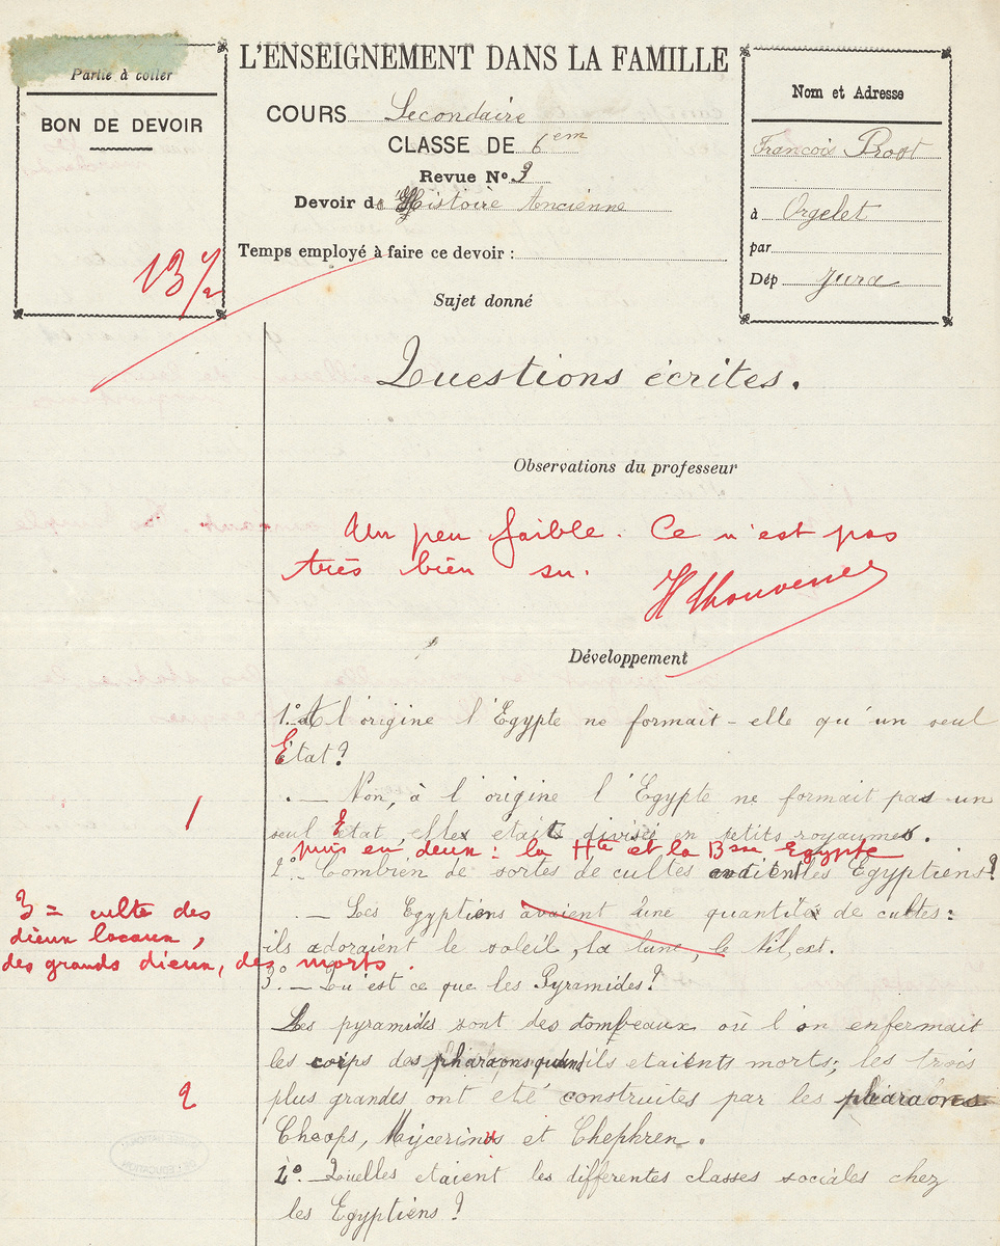 Partie à coller
BON DE DEVOIR
13 1/2
L'ENSEIGNEMENT DANS LA FAMILLE
COURS Secondaire
CLASSE DE 6em
Revue No 3
Devoir de Histoire Ancienne
Temps employé à faire ce devoir :
Nom et Adresse
François Proot
à Orgelet
par
Dép Jura
Sujet donné
Questions écrites.
Observations du professeur
Un peu faible. Ce n'est pas
très bien su.
H Thouvenez
Développement
1° A l'origine l'Egypte ne formait-elle qu'un seul
Etat?
. — Non, à l'origine l'Egypte ne formait pas un
1
seul Etat, elle etait divisé en petits royaumes.
puis en deux : la Hte et la Bsse Egypte
2° - Combien de sortes de cultes avaient les Egyptiens?
3 = culte des
dieux locaux,
des grands dieux, des morts.
. — Les Egyptiens avaient une quantité de cultes :
ils adoraient le soleil, la lune, le Nil, ext.
3° — Qu'est ce que les Pyramides?
Les pyramides sont des tombeaux où l'on enfermait
les corps des pharaons quand ils etaients morts; les trois
2
plus grandes ont eté construites par les pharaons
Cheops, Mycerinus et Chephren.
4°. — Quelles etaient les differentes classes sociales chez
les Egyptiens?